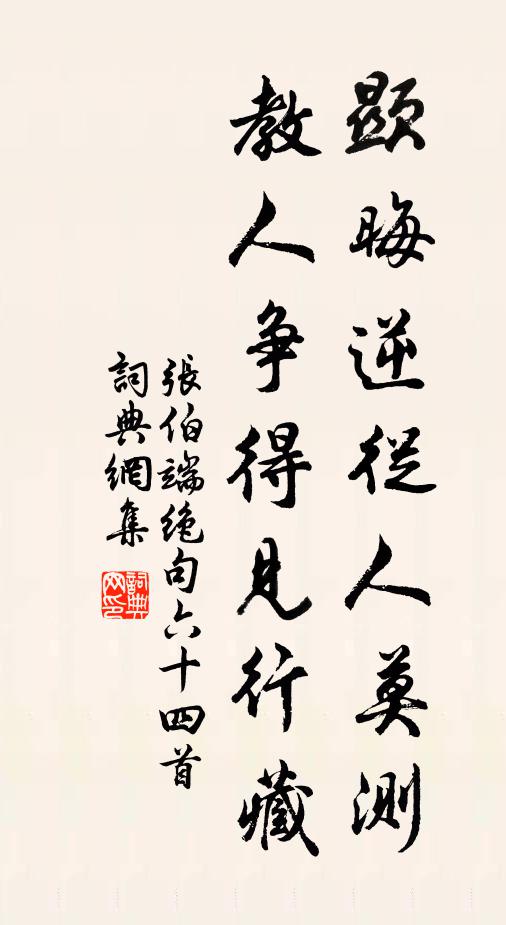 顯晦逆從人莫測
教人争得見行藏
張伯端绝句六十四首
詞典網集
詞典
网印